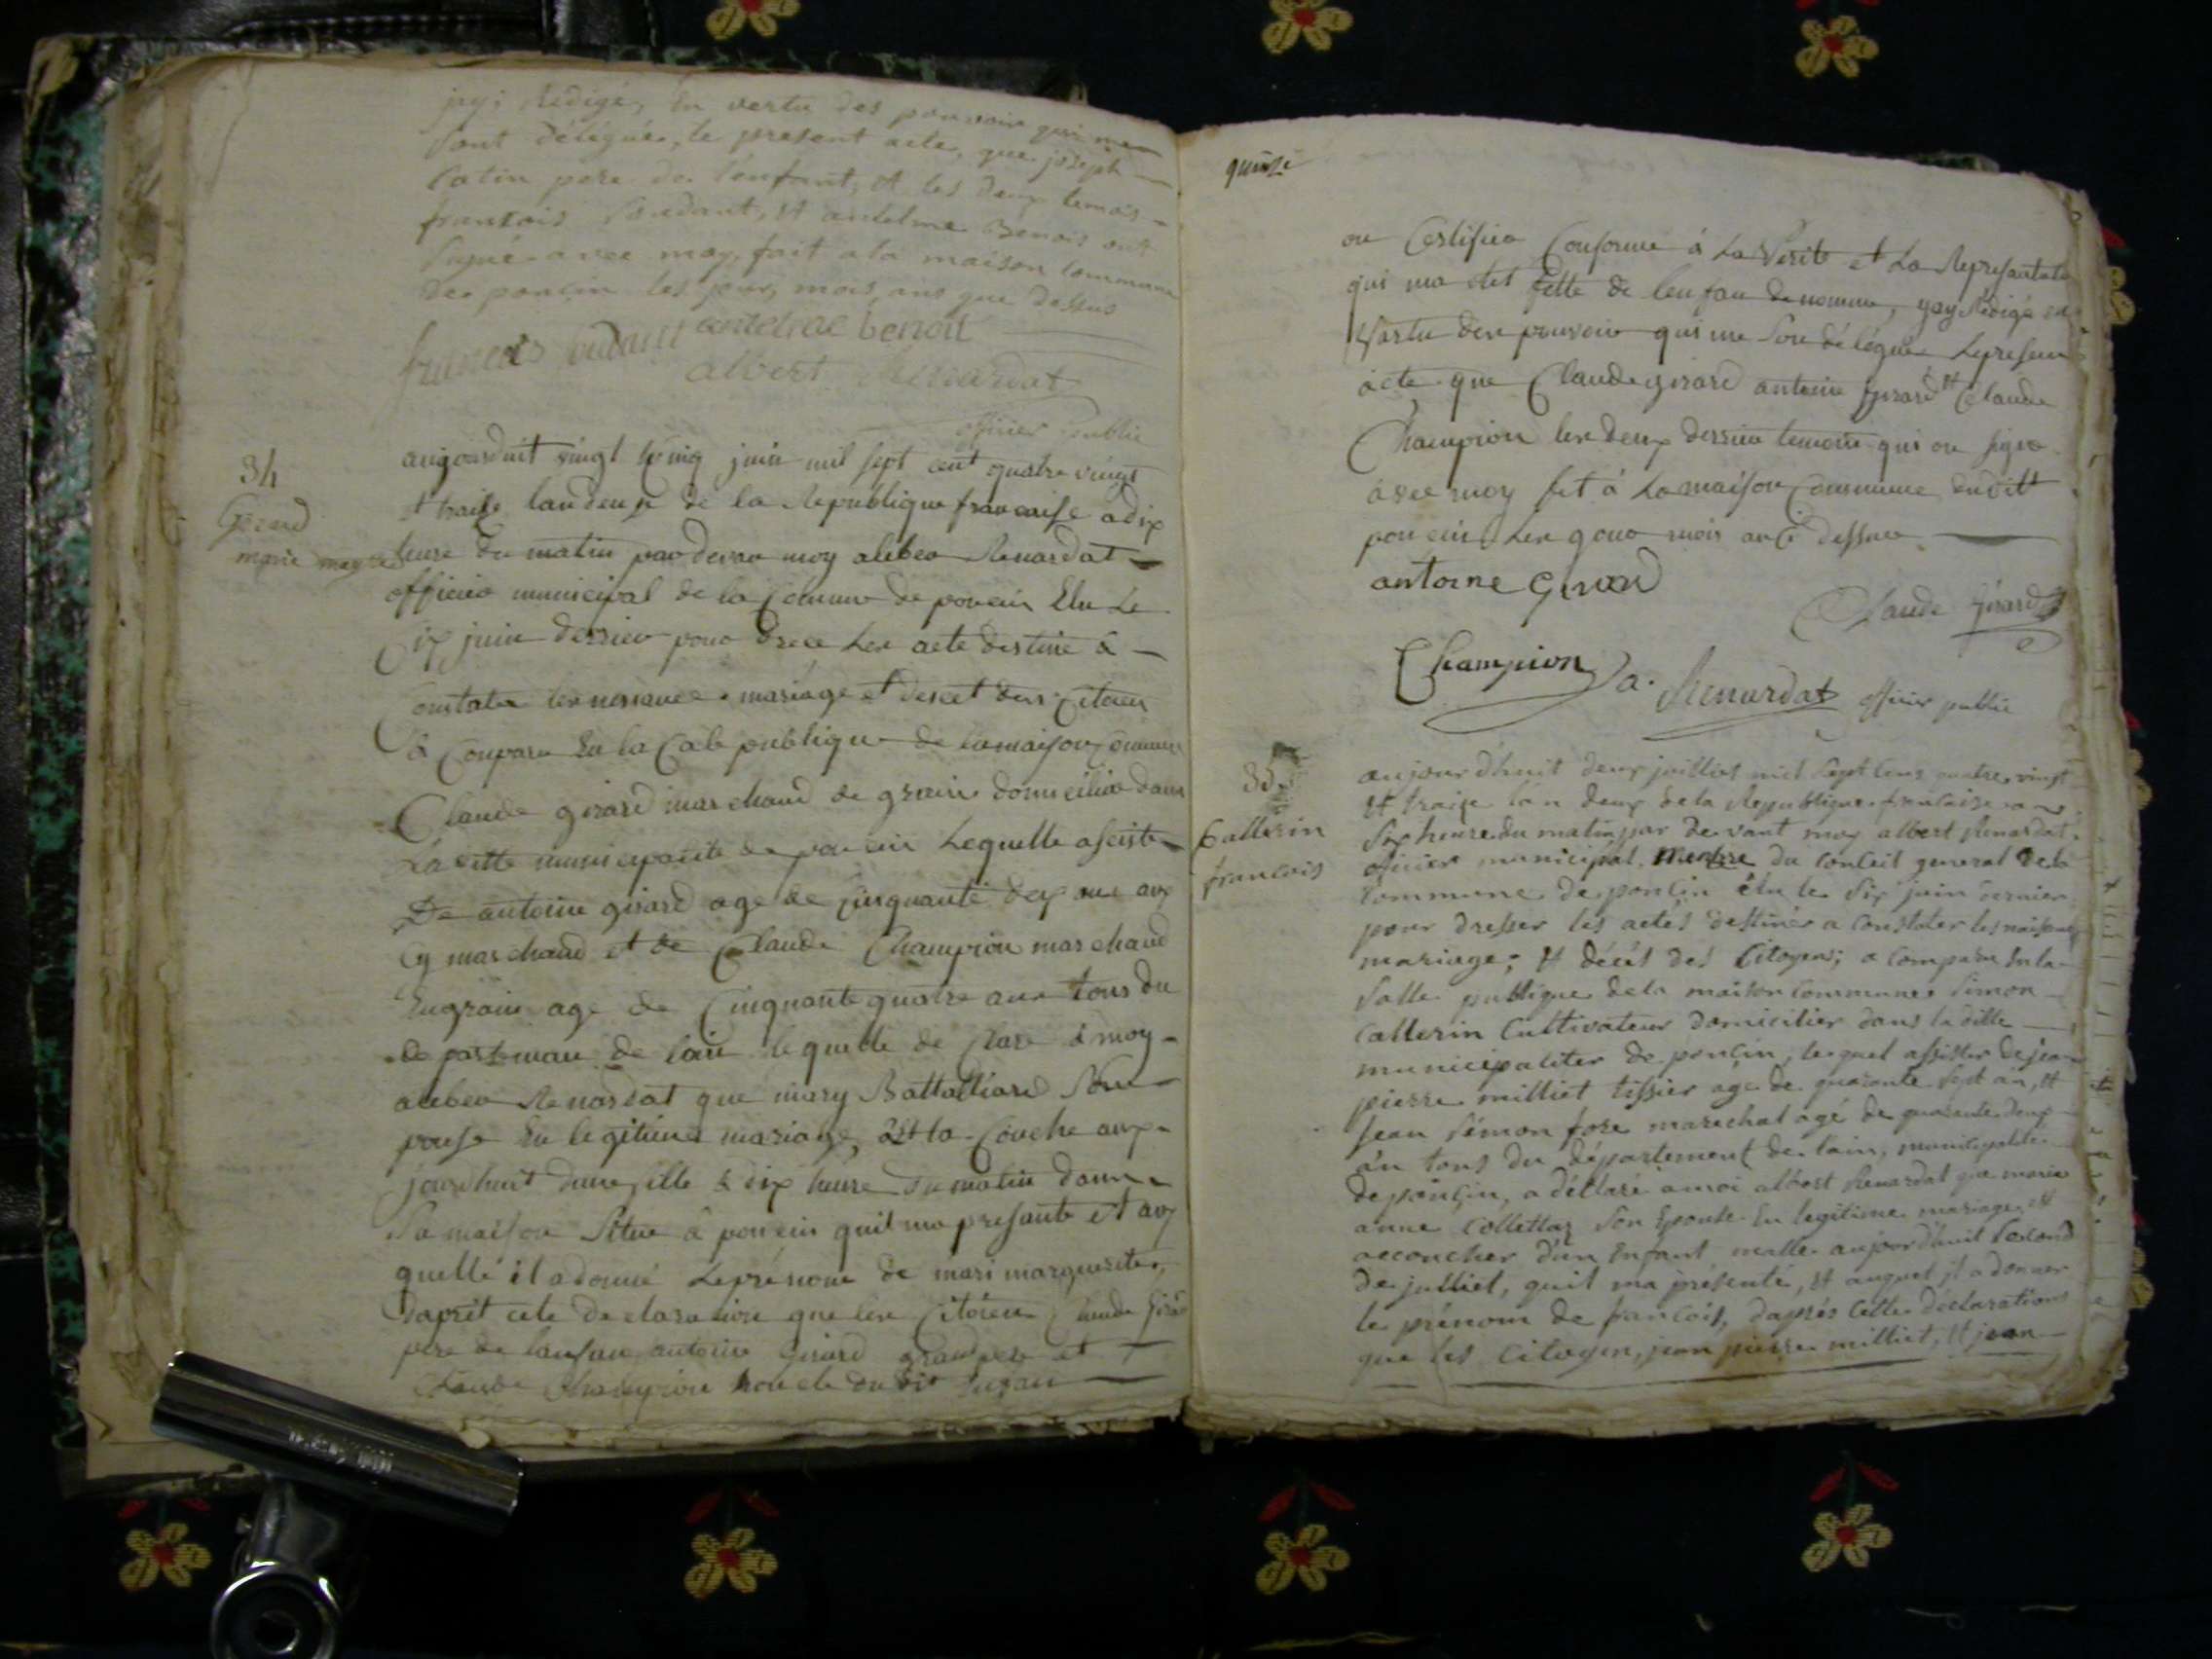 jay; Rédigé, En vertu des pouvoir qui me
sont délégués, le present acte, que joseph
Catin pere de l'enfant, et les deux temois
francois Soudant, et antelme Benois ont
signé avec moy, fait a la maison commune
de poncin les jour, mois, ans que dessus
francois antelme benoit
albert Renardat
officier public
34
Girard
marie
aujourduit vingt juin mil sept cent quatre vingt
et traize landeuse de la Republique francaise a dix
heure du matin par devan moy alber Renardat
officier municipal de la Comune de poncin Elu Le
Six juin dernier pour drece Les acte destiné à
Constater les nessance mariage et deset des Citoien
à Conparu En la Sale publique de lamaison Commune
Claude girard marchand de grain domicilié dans
La ditte municipalité de poncin Lequelle asciste
De antoine girard age de cinquante ans
marchand et de Claude Champion marchand
En grain age de Cinquante quatre ans tous du
de parteman de lain lequelle de clare à moy
alber Renardat que mary Battalliard Son
pouse En legitime mariage, Est a Couche aux
jourdhuit dune fille à dix heure du matin dans
Sa maison Situe à poncin quil ma presante et aux
quelle il a donné Le prénom de mari marguerite,
Daprét cete declaration que les Citoien Claude Girar
pere de lanfan, antoine Girard grandpere et
Claude Champion oncle du dit Enfan
quinze
on Certifiée Conforme à La Verité et La Représantation
qui ma etes fette de lenfan denommé, jay Rédigé en
Vartu des pouvoir qui me Son délégué Le presen
acte que Claude girard antoine girard et Claude
Champion les deux dernier temoin qui on signe
avec moy fet à La maison Commune du dit
poncin Les gour mois an Ci dessus
antoine Girard
Claude Girard
Champion
a. Renardat officier public
35
Callerin
francois
aujourdhuit deux juilliet mil sept cens quatre vingt
et traize l'an deux de la Republique francaise a
Six heure du matin par devant moy albert Renardat
officier municipal, membre du conceil general de la
commune de poncin élu le Six juin dernier
pour dresser les actes destiner a constater les naissances
mariage; et décés des Citoyens; a comparu En la
Salle publique de la maison commune Simon
Callerin Cultivateur domicilier dans la ditte
municipaliter de poncin, lequel assister de jean
pierre milliet tissier age de quarante sept an, et
jean Simon fore marechal agé de quarante deux
an tous du département de lain, municipalité
de poncin, a déclaré a moi albert Renardat que marie
anne Collettaz Son Epouse En legitime mariage, est
accoucher d'un Enfant malle aujourd'huit Second
de julliet, quil ma présenté, et auquel jl a donner
le prénom de francois, daprés Cette déclarations
que les Citoyen, jean pierre milliet, et jean